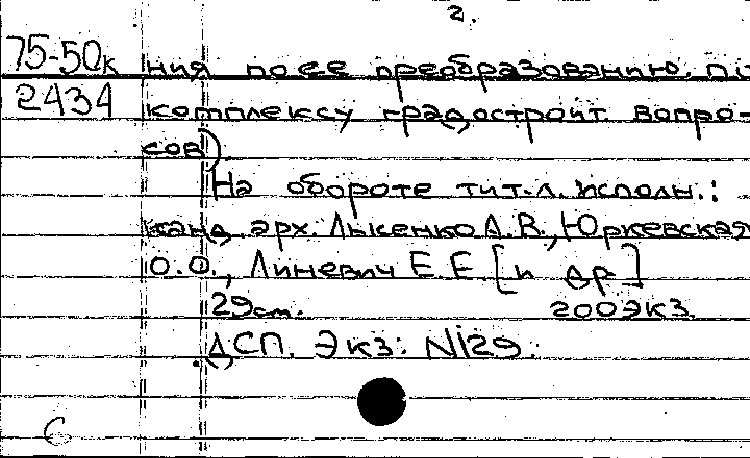 2.
75-50к ния по ее преобразованию. по
2434 комплексу градостроит. вопро-
сов)
На обороте тит.л. исполн.:
канд. арх. Лысенко А.В., Юркевская
О.О., Линевич Е.Е. [и др]
29см. 200экз.
ДСП. Экз: №129.
С